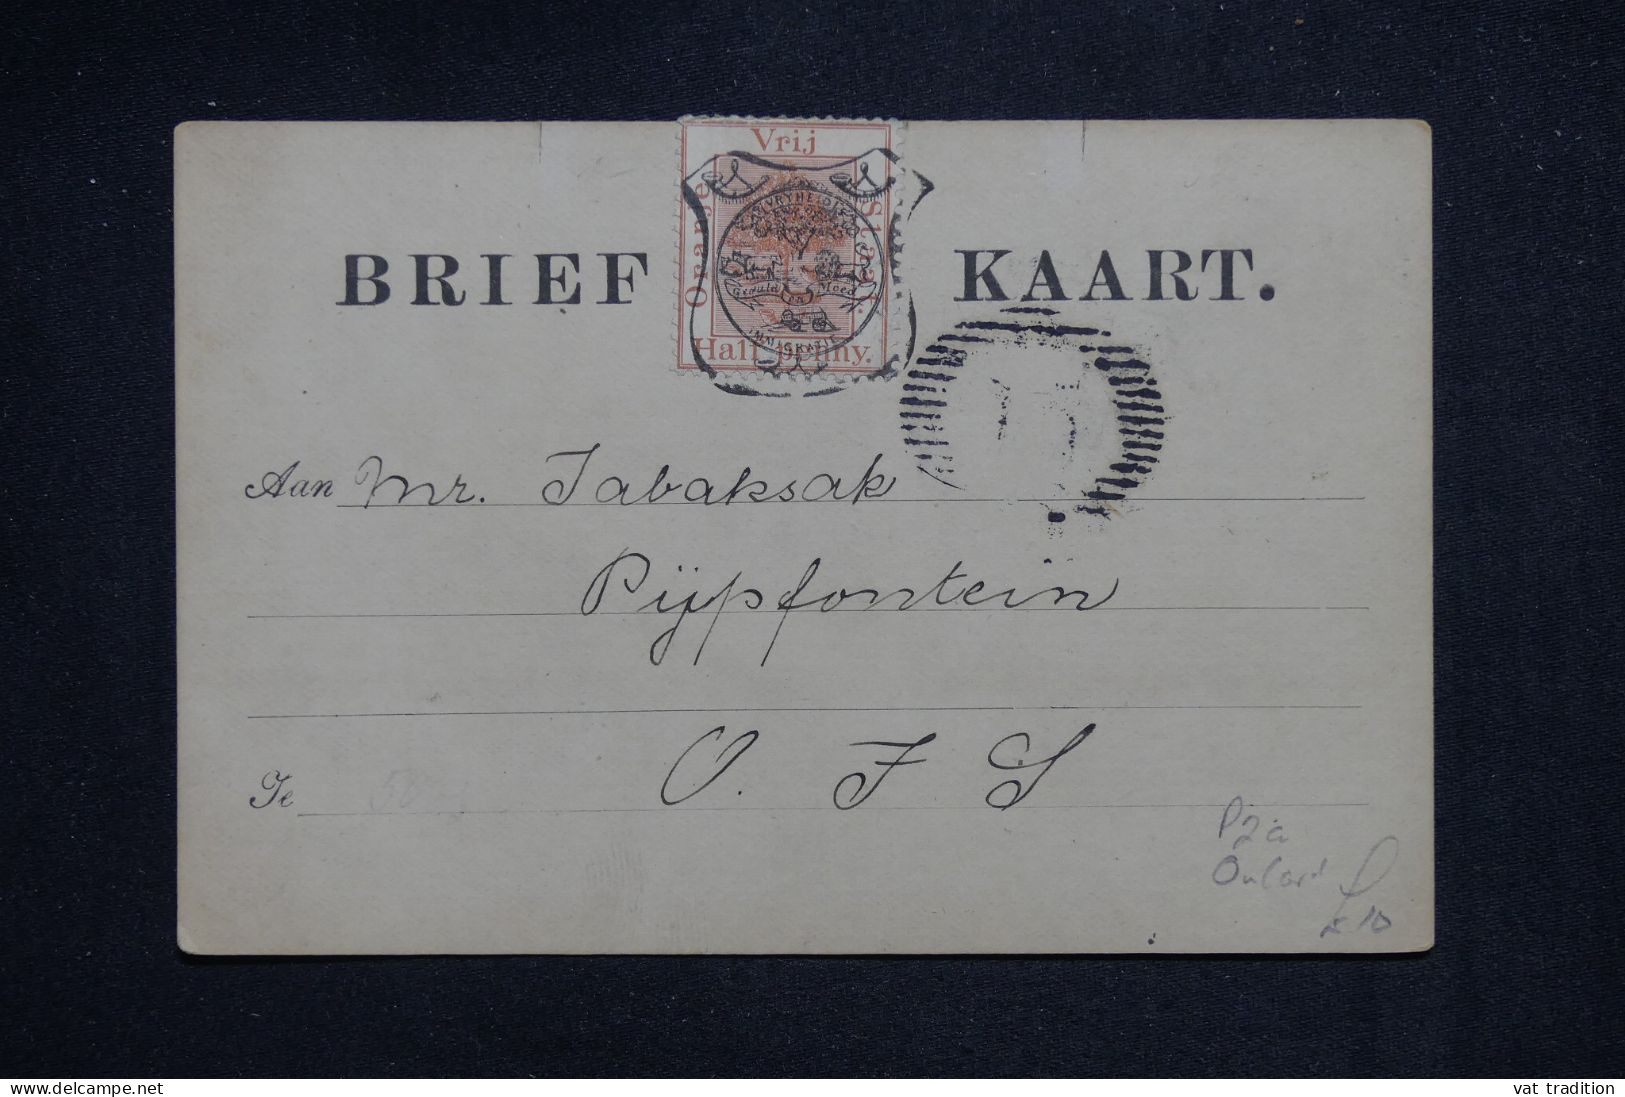 Vrij
Oranje
Staat.
VRYHEID
Geduld en Moed
IMMIGRATIE
Half penny.
BRIEF KAART.
15
Aan Mr. Tabaksak
Pijpfontein
O. F S
Te
P2a
£10
delcampe.net
vat tradition